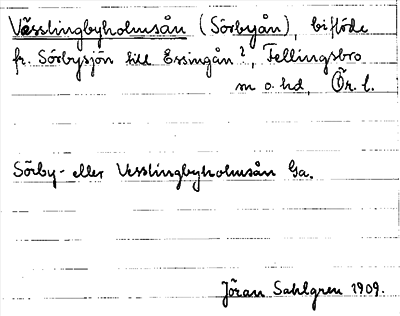 Vässlingbyholmsån (Sörbyån), biflöde
fr. Sörbysjön till Essingån?, Fellingsbro
sn o. hd, Ör. l.
Sörby- eller Vesslingbyholmsån Ga.
Jöran Sahlgren 1909.